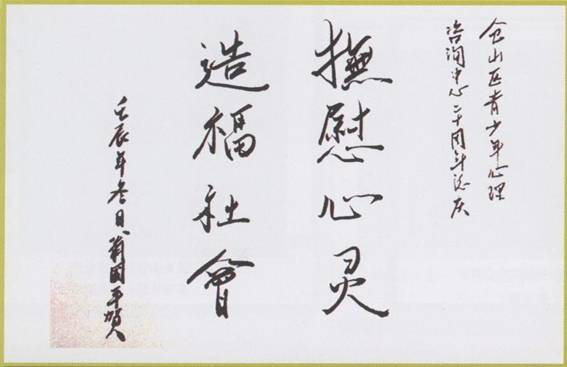 仓山区青少年心理
咨询中心二十周年志庆
撫慰心灵
造福社會
壬辰年冬日 國平賀